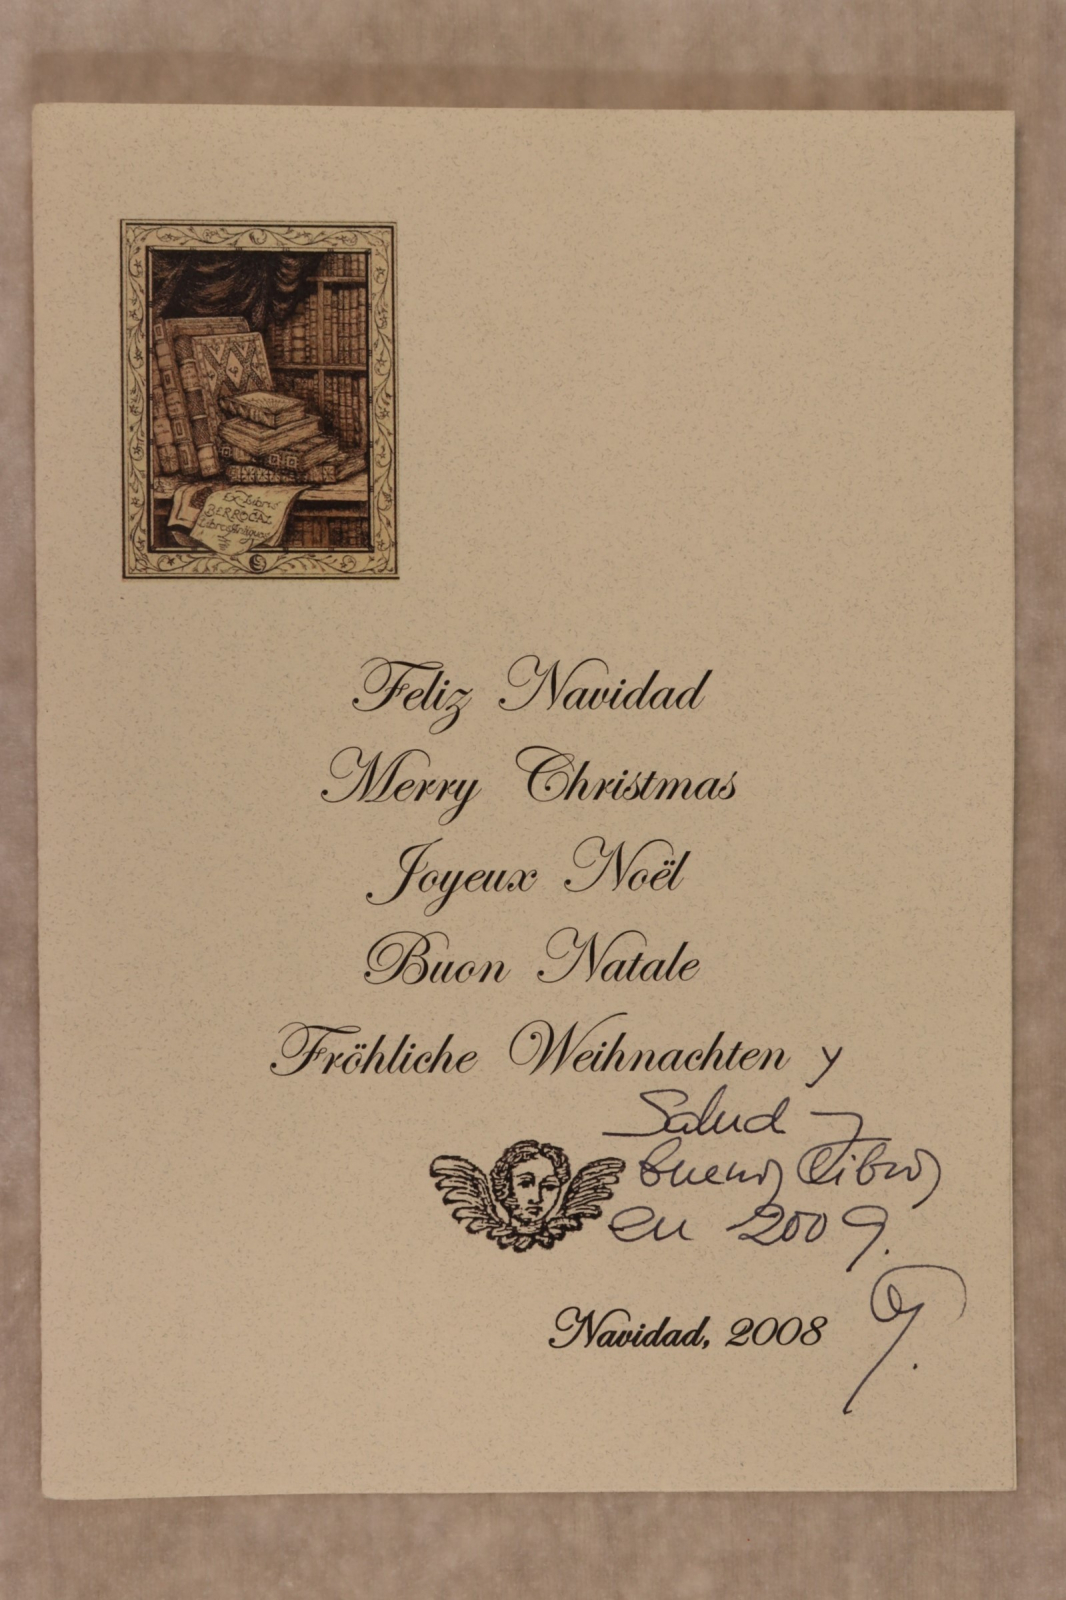 Ex-Libris
BERROCAL
Libros Antiguos
Feliz Navidad
Merry Christmas
Joyeux Noël
Buon Natale
Fröhliche Weihnachten y
Salud y
buenos libros
en 2009.
Navidad, 2008